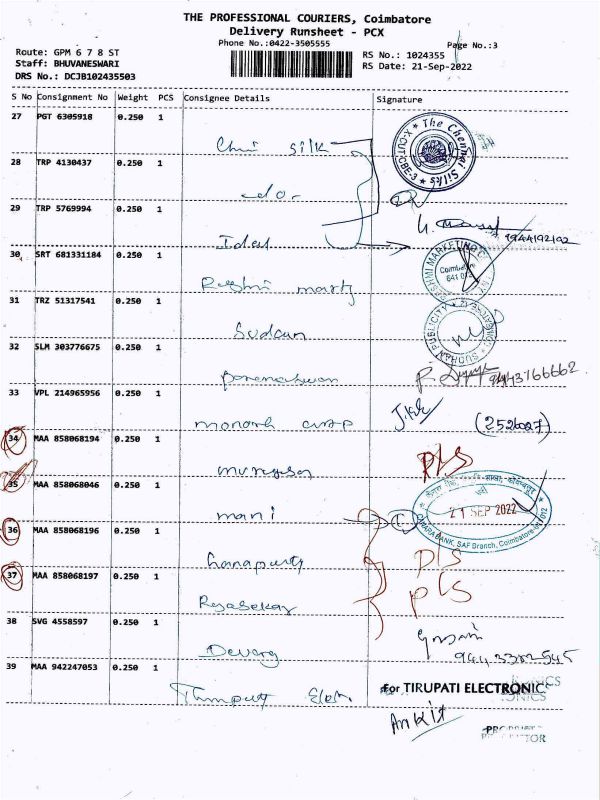 THE PROFESSIONAL COURIERS, Coimbatore
Delivery Runsheet - PCX
Phone No.:0422-3505555
Page No.:3
Route: GPM 6 7 8 ST
RS No.: 1024355
Staff: BHUVANESWARI
RS Date: 21-Sep-2022
DRS No.: DCJB102435503
S No Consignment No Weight PCS Consignee Details Signature
27 PGT 6305918 0.250 1
silk
The Chennai Silks
28 TRP 4130437 0.250 1
do-
29 TRP 5769994 0.250 1
Ideal
9944192192
30 SRT 681331184 0.250 1
Coimbatore
641 012
31 TRZ 51317541 0.250 1
SUDHAN PUBLICITY
32 SLM 303776675 0.250 1
9443166662
33 VPL 214965956 0.250 1
(2526027)
34 MAA 858068194 0.250 1
murugesan
P/S
35 MAA 858068046 0.250 1
mani
21 SEP 2022
CANARA BANK, SAF Branch, Coimbatore 641 012
36 MAA 858068196 0.250 1
P/S
37 MAA 858068197 0.250 1
Rajasekar
P/S
38 SVG 4558597 0.250 1
Devaraj
39 MAA 942247053 0.250 1
For TIRUPATI ELECTRONICS
Ankit
PROPRIETOR